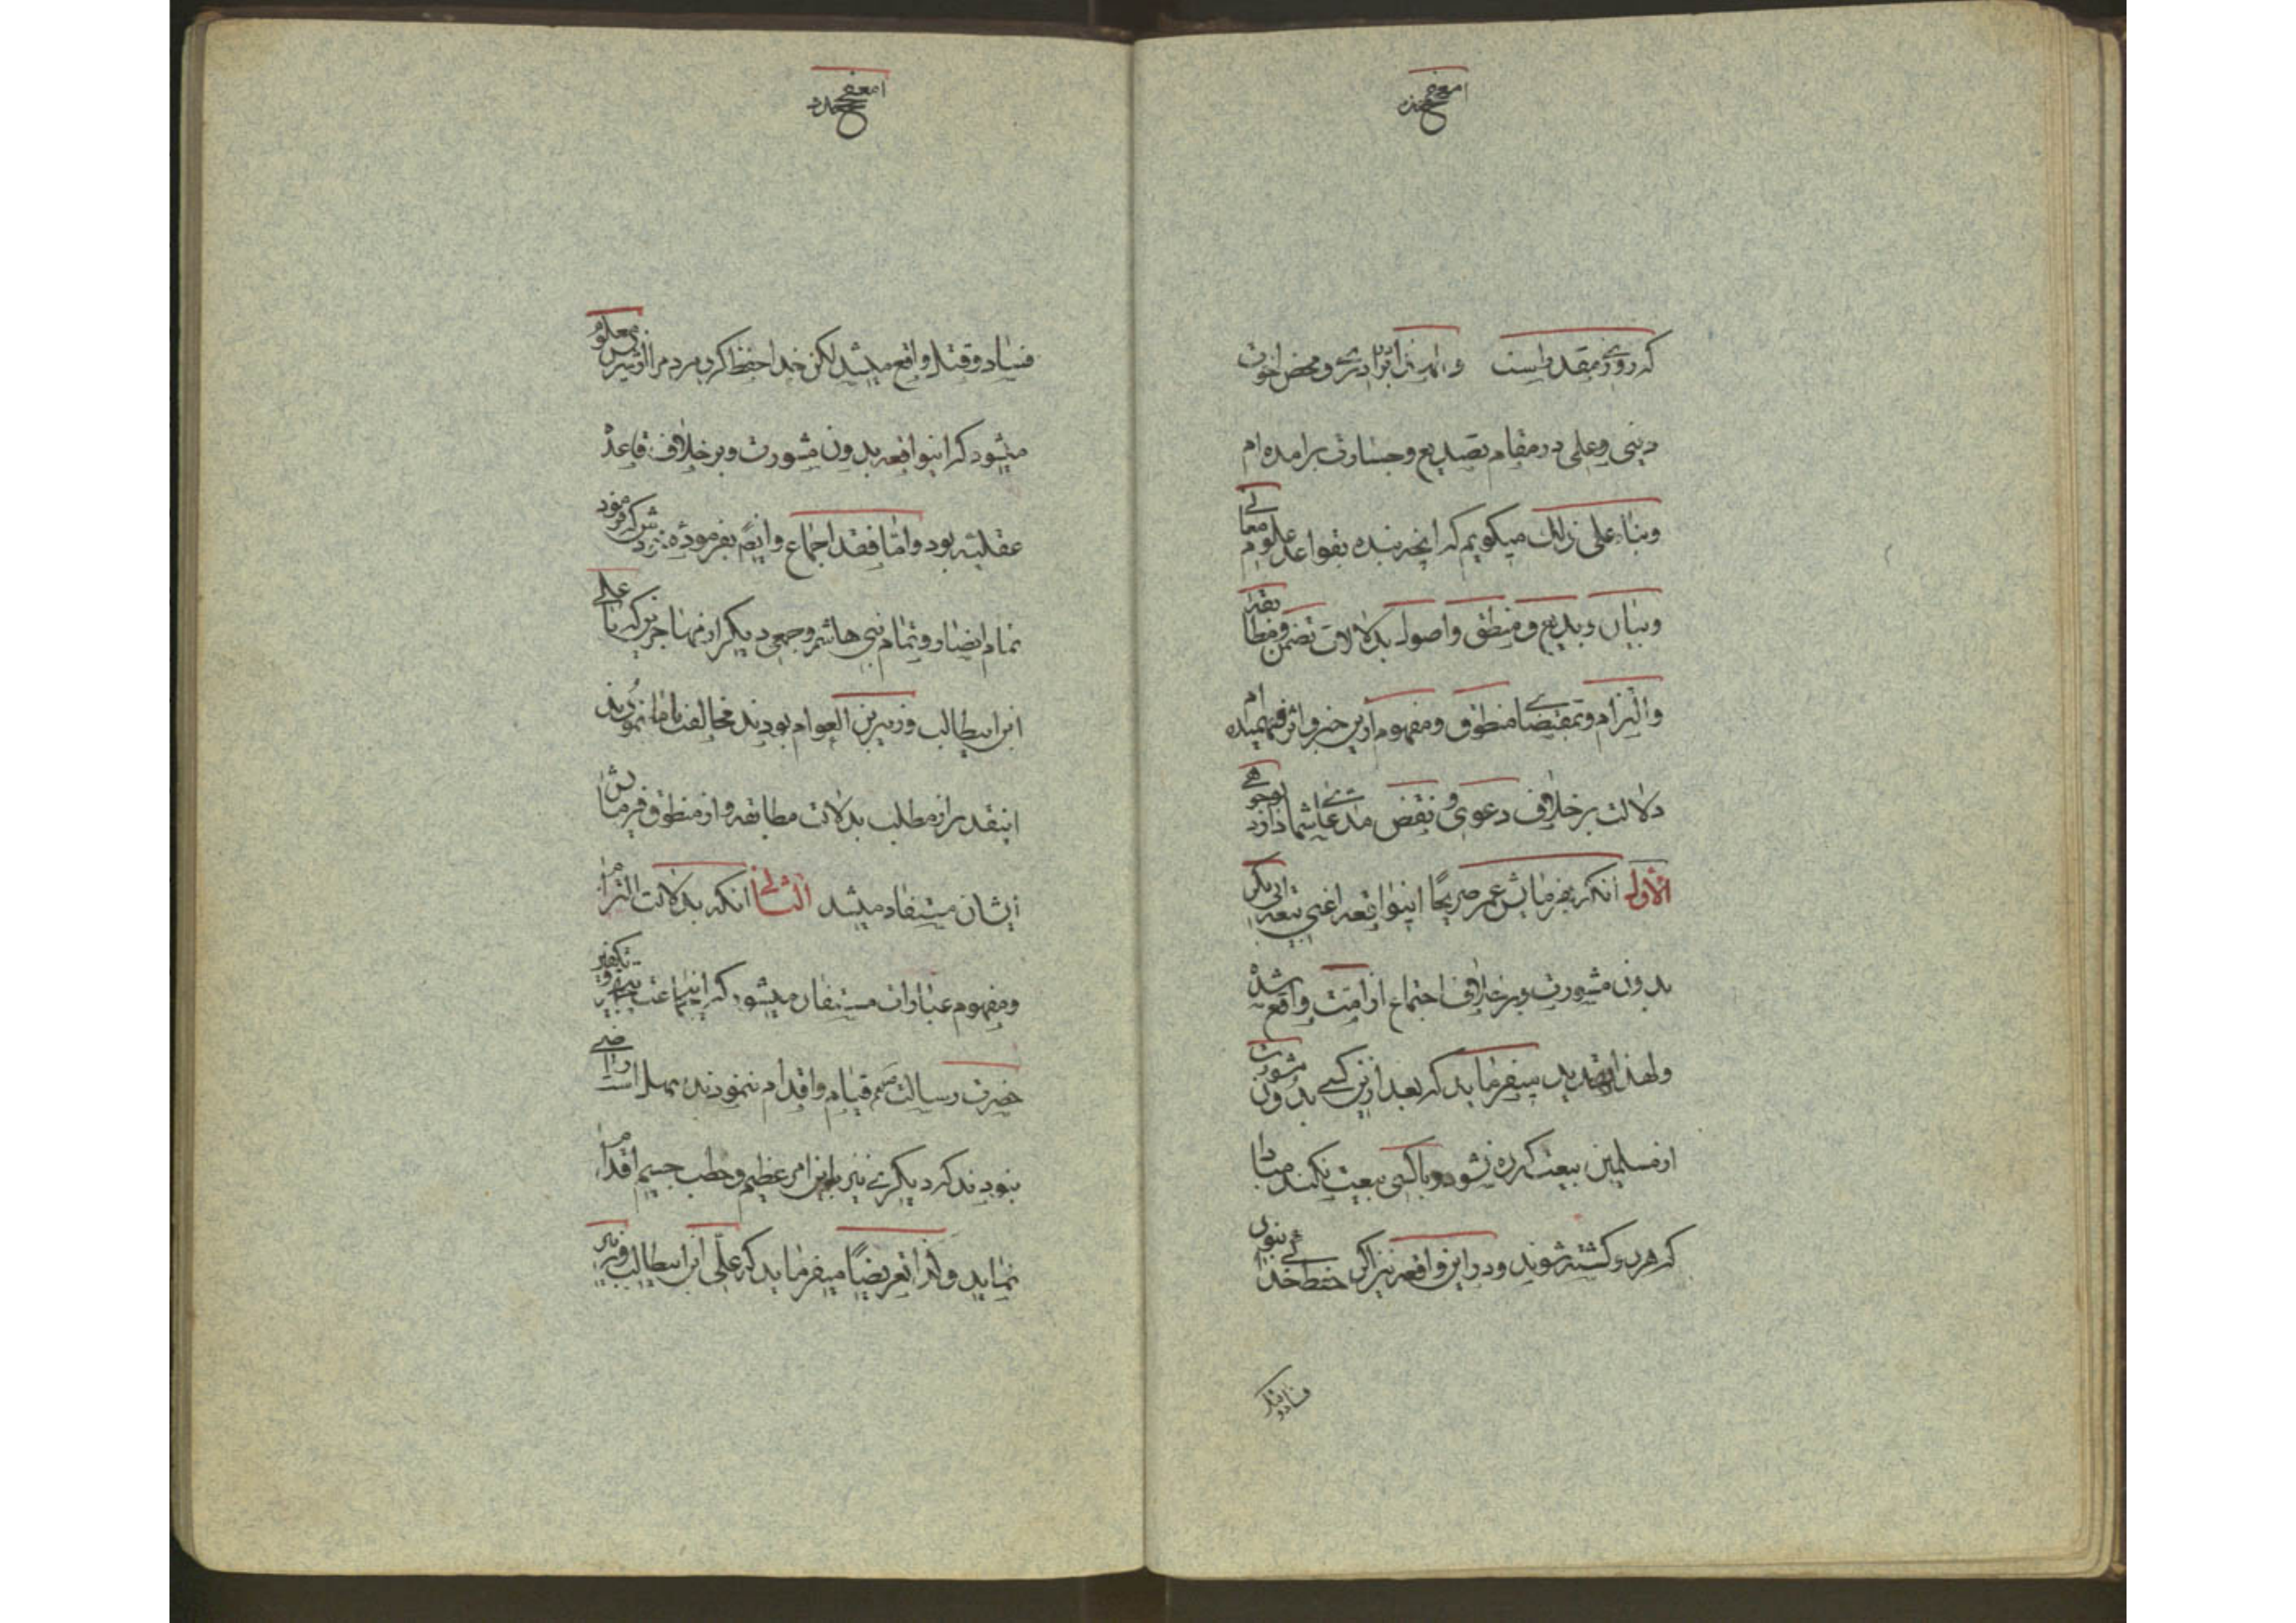 که روزی مقدر است و از برادری و محض اخوت
دینی و علمی در مقام تصدیع و جسارت برآمده‌ام
و بناء علی ذلك میکویم که انچه بنده بقواعد علوم معانی
و بیان و بدیع و منطق و اصول بدلالات تضمن و مطابقه
و التزام و بمقتضای منطوق و مفهوم ازین خبر و اثر فهمیده ام
دلالت بر خلاف دعوی و نقض مدعای شما دارد بوجوهی
الأول انکه بفرمایش عمر صریحًا اینواقعه اعنی بیعه ابی بکر
بدون مشورت و بر خلاف اجتماع از امت واقع شده
و لهذا تهدید میفرماید که بعد ازین کسی بدون مشورت
از مسلمین بیعت کرده نشود و با کسی بیعت نکند مبادا
که هر دو کشته شوند و در این واقعه نیز اکر حفظ خدائی نبودی
فساد و قتل
فساد و قتل واقع میشد لکن خدا حفظ کرد مردم را از شرش معلوم
میشود که اینواقعه بدون مشورت و بر خلاف قاعده
عقلیه بود و امّا فقد اجماع و ایضً بفرموده خودش که فرمود
تمام انصار و تمام بنی هاشم و جمعی دیکر از مهاجرین که با علی
ابن ابیطالب و زبیر بن العوام بودند مخالفت با ما نمودند
اینقدر از مطلب بدلالت مطابقه و از منطوق فرمایش
ایشان مستفاد میشد الثانی انکه بدلالت التزام
و مفهوم عبارات مستفاد میشود که اینجماعت تکفیر و
حضرت رسالت صم قیام و اقدام ننمودند بهل است راضی
نبودند که دیکری نیز باین امر عظیم و خطب جسیم اقدام
نماید و لذا تعریضًا میفرماید که علی ابن ابیطالب و زبیر